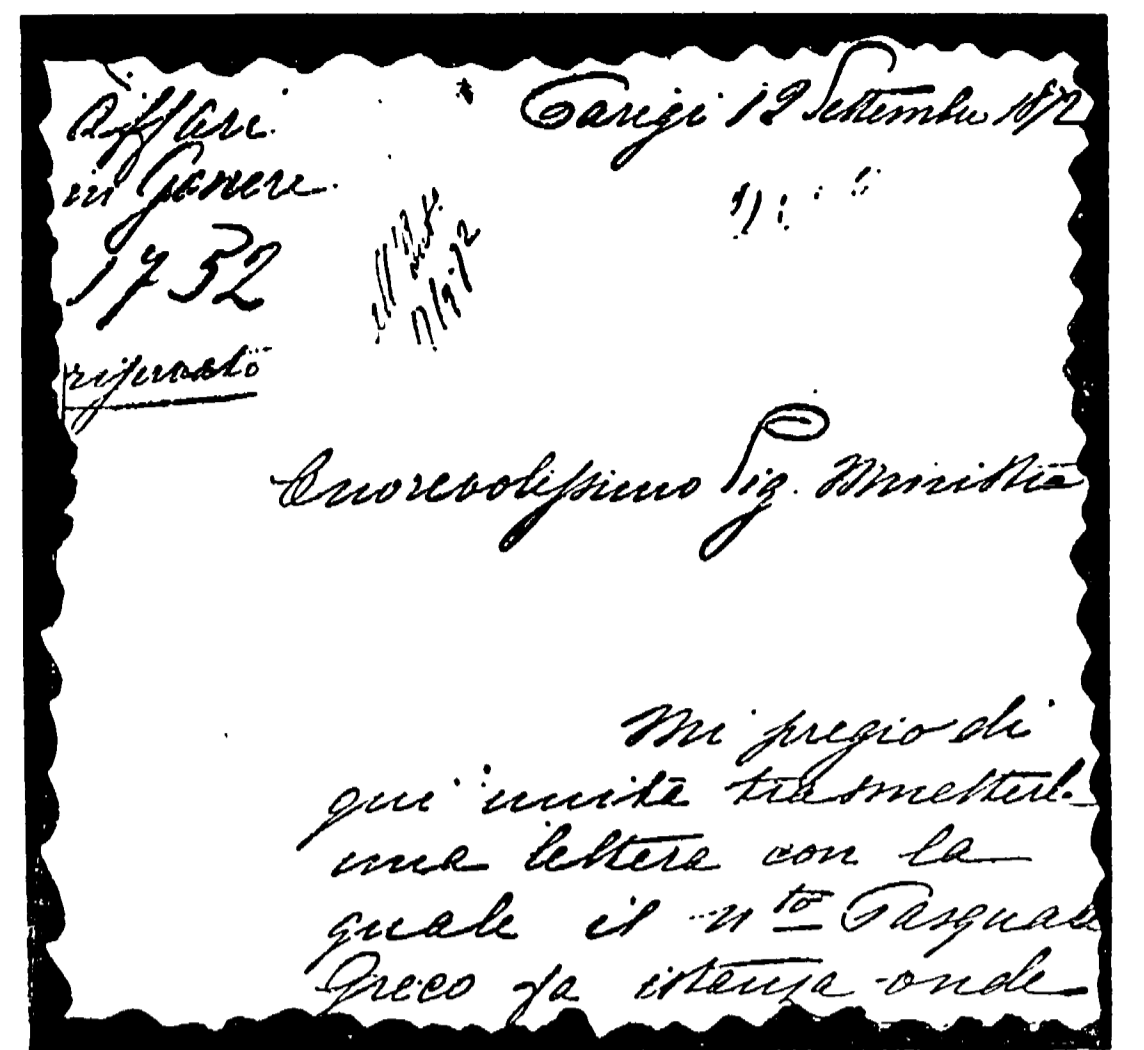 Affari
in Genere
1752
Parigi 12 Settembre 1872
Onorevolissimo Sig. Ministro
Mi pregio di
qui unita trasmetterle
una lettera con la
quale il n.to Pasquale
Greco fa istanza onde